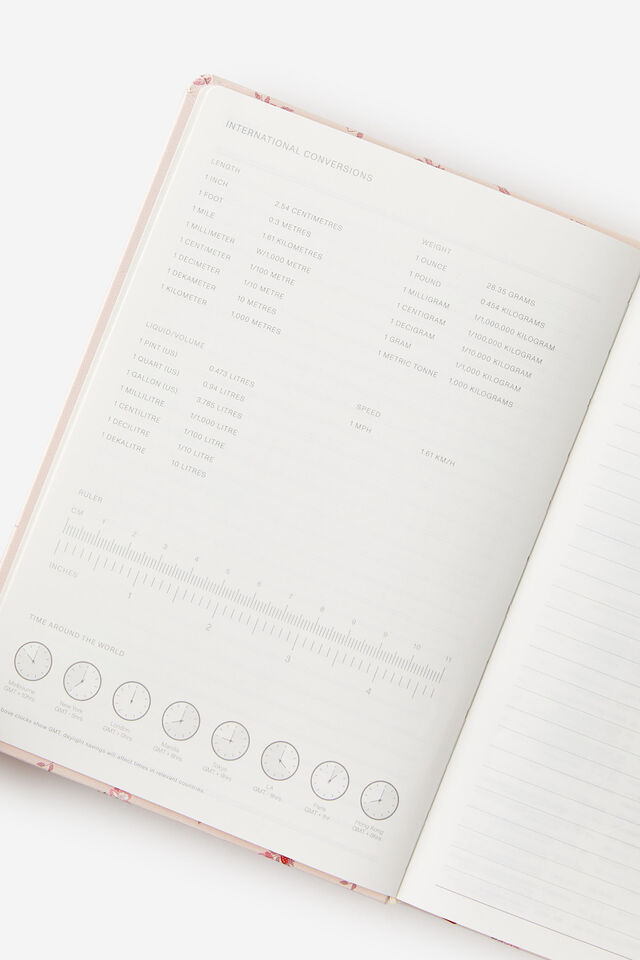 INTERNATIONAL CONVERSIONS
LENGTH
1 INCH 2.54 CENTIMETRES
1 FOOT 0.3 METRES
1 MILE 1.61 KILOMETRES
1 MILLIMETER W/1,000 METRE
1 CENTIMETER 1/100 METRE
1 DECIMETER 1/10 METRE
1 DEKAMETER 10 METRES
1 KILOMETER 1,000 METRES
WEIGHT
1 OUNCE 28.35 GRAMS
1 POUND 0.454 KILOGRAMS
1 MILLIGRAM 1/1,000,000 KILOGRAM
1 CENTIGRAM 1/100,000 KILOGRAM
1 DECIGRAM 1/10,000 KILOGRAM
1 GRAM 1/1,000 KILOGRAM
1 METRIC TONNE 1,000 KILOGRAMS
LIQUID/VOLUME
1 PINT (US) 0.473 LITRES
1 QUART (US) 0.94 LITRES
1 GALLON (US) 3.785 LITRES
1 MILLILITRE 1/1,000 LITRE
1 CENTILITRE 1/100 LITRE
1 DECILITRE 1/10 LITRE
1 DEKALITRE 10 LITRES
SPEED
1 MPH 1.61 KM/H
RULER
CM 1 2 3 4 5 6 7 8 9 10 11
INCHES 1 2 3 4
TIME AROUND THE WORLD
Melbourne
GMT + 10hrs
New York
GMT - 5hrs
London
GMT + 0hrs
Manila
GMT + 8hrs
Tokyo
GMT + 9hrs
LA
GMT - 8hrs
Paris
GMT + 1hr
Hong Kong
GMT + 8hrs
bove clocks show GMT, daylight savings will affect times in relevant countries.